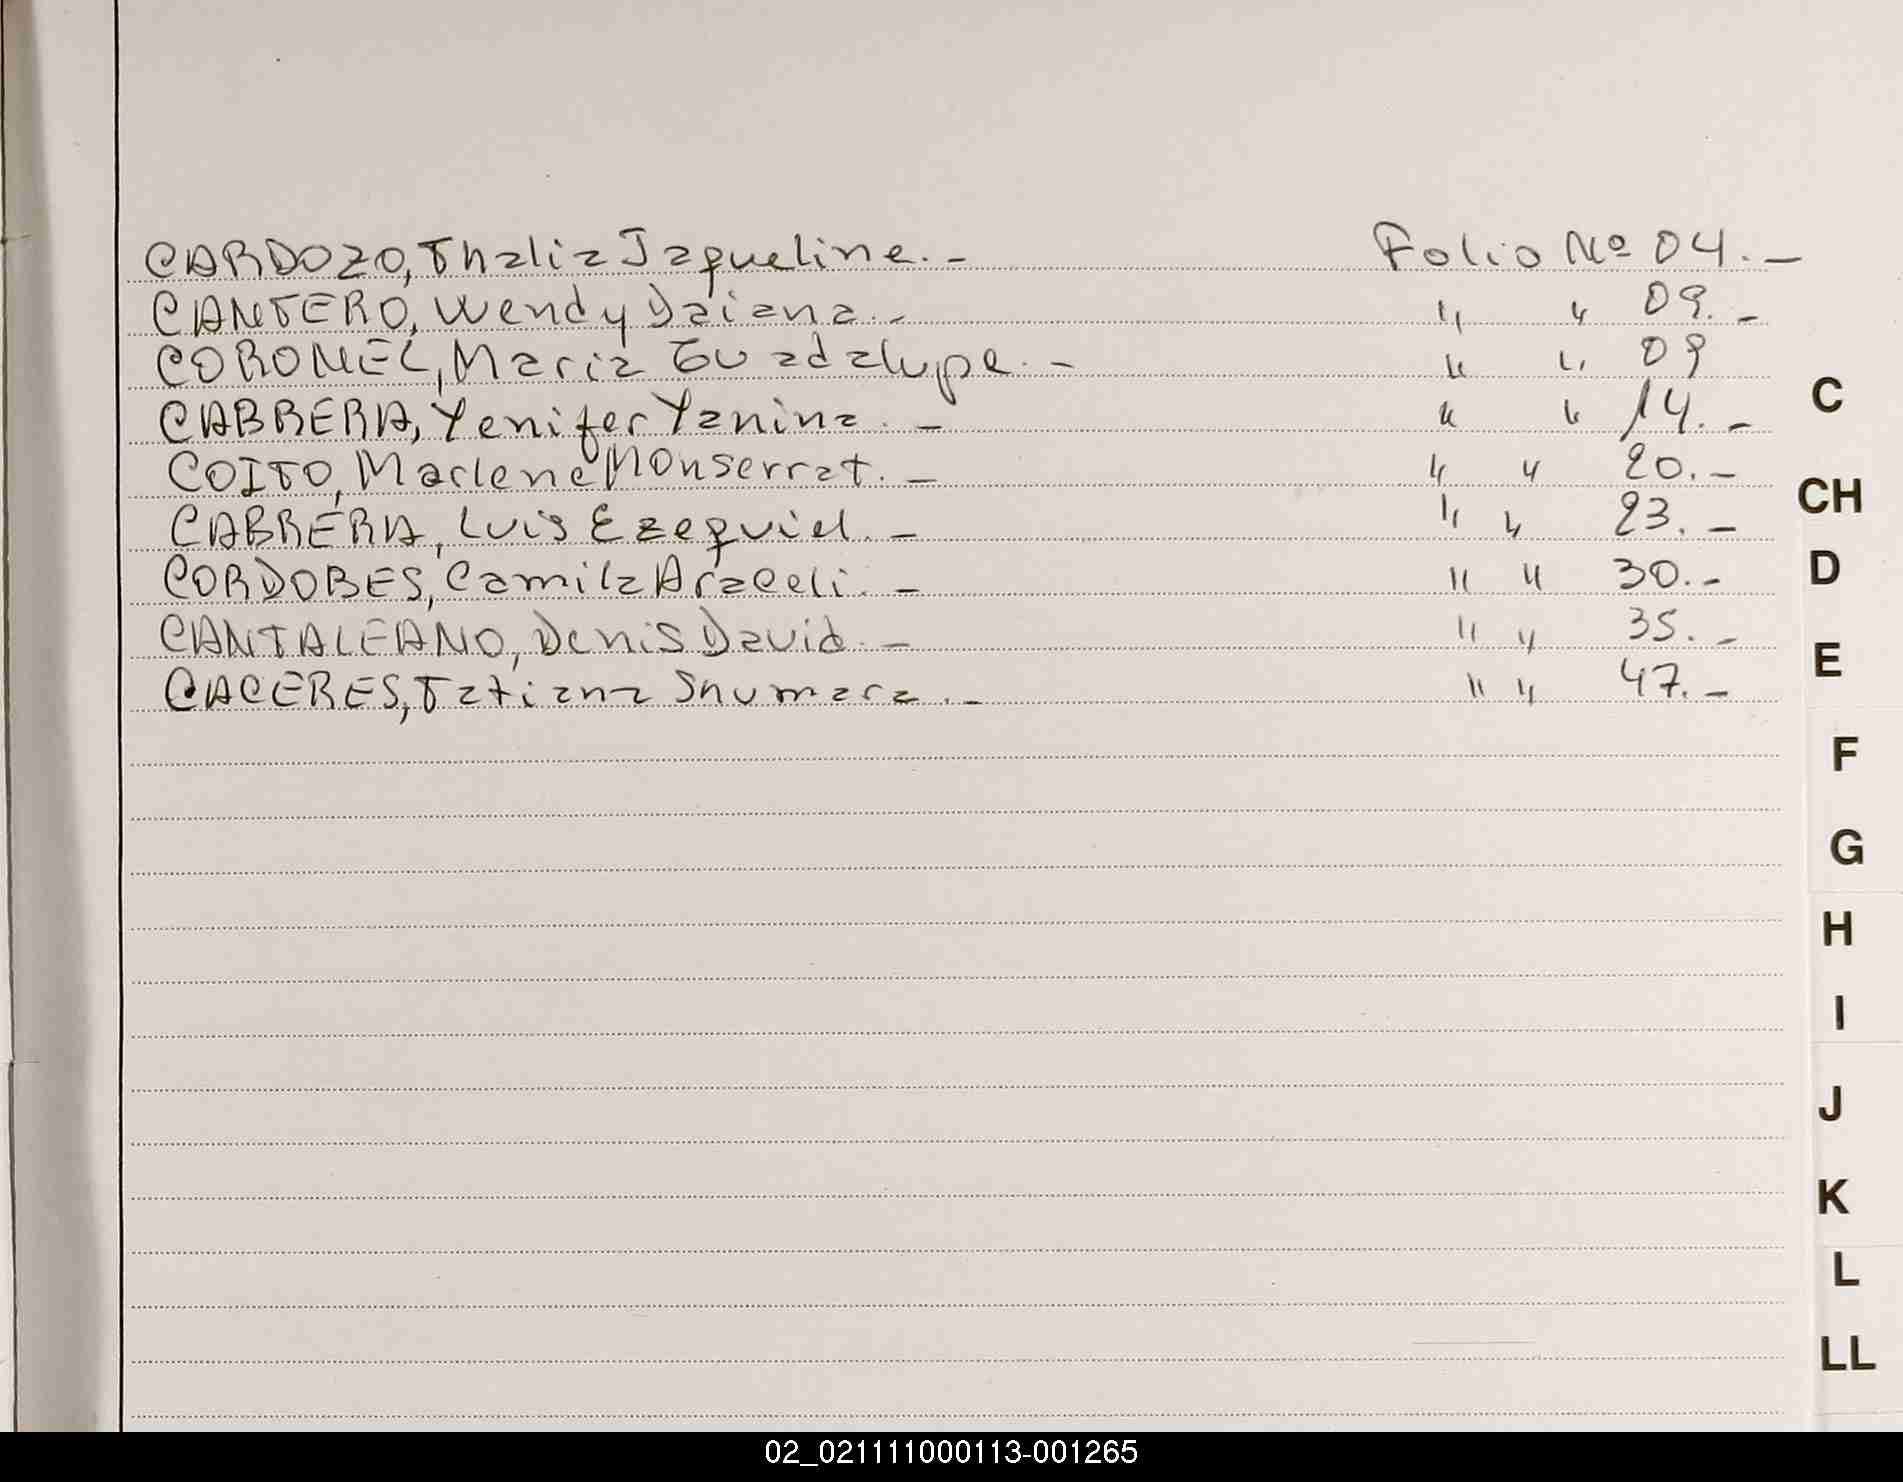 CARDOZO, Thalia Jaqueline.- Folio Nº 04.-
CANTERO, Wendy Daiana.- " " 09.-
CORONEL, Maria Guadalupe.- " " 09
CABRERA, Yenifer Yanina.- " " 14.-
COITO, Marlene Monserrat.- " " 20.-
CABRERA, Luis Ezequiel.- " " 23.-
CORDOBES, Camila Araceli.- " " 30.-
CANTALEANO, Denis David.- " " 35.-
CACERES, Tatiana Shumara.- " " 47.-
C
CH
D
E
F
G
H
I
J
K
L
LL
02_021111000113-001265